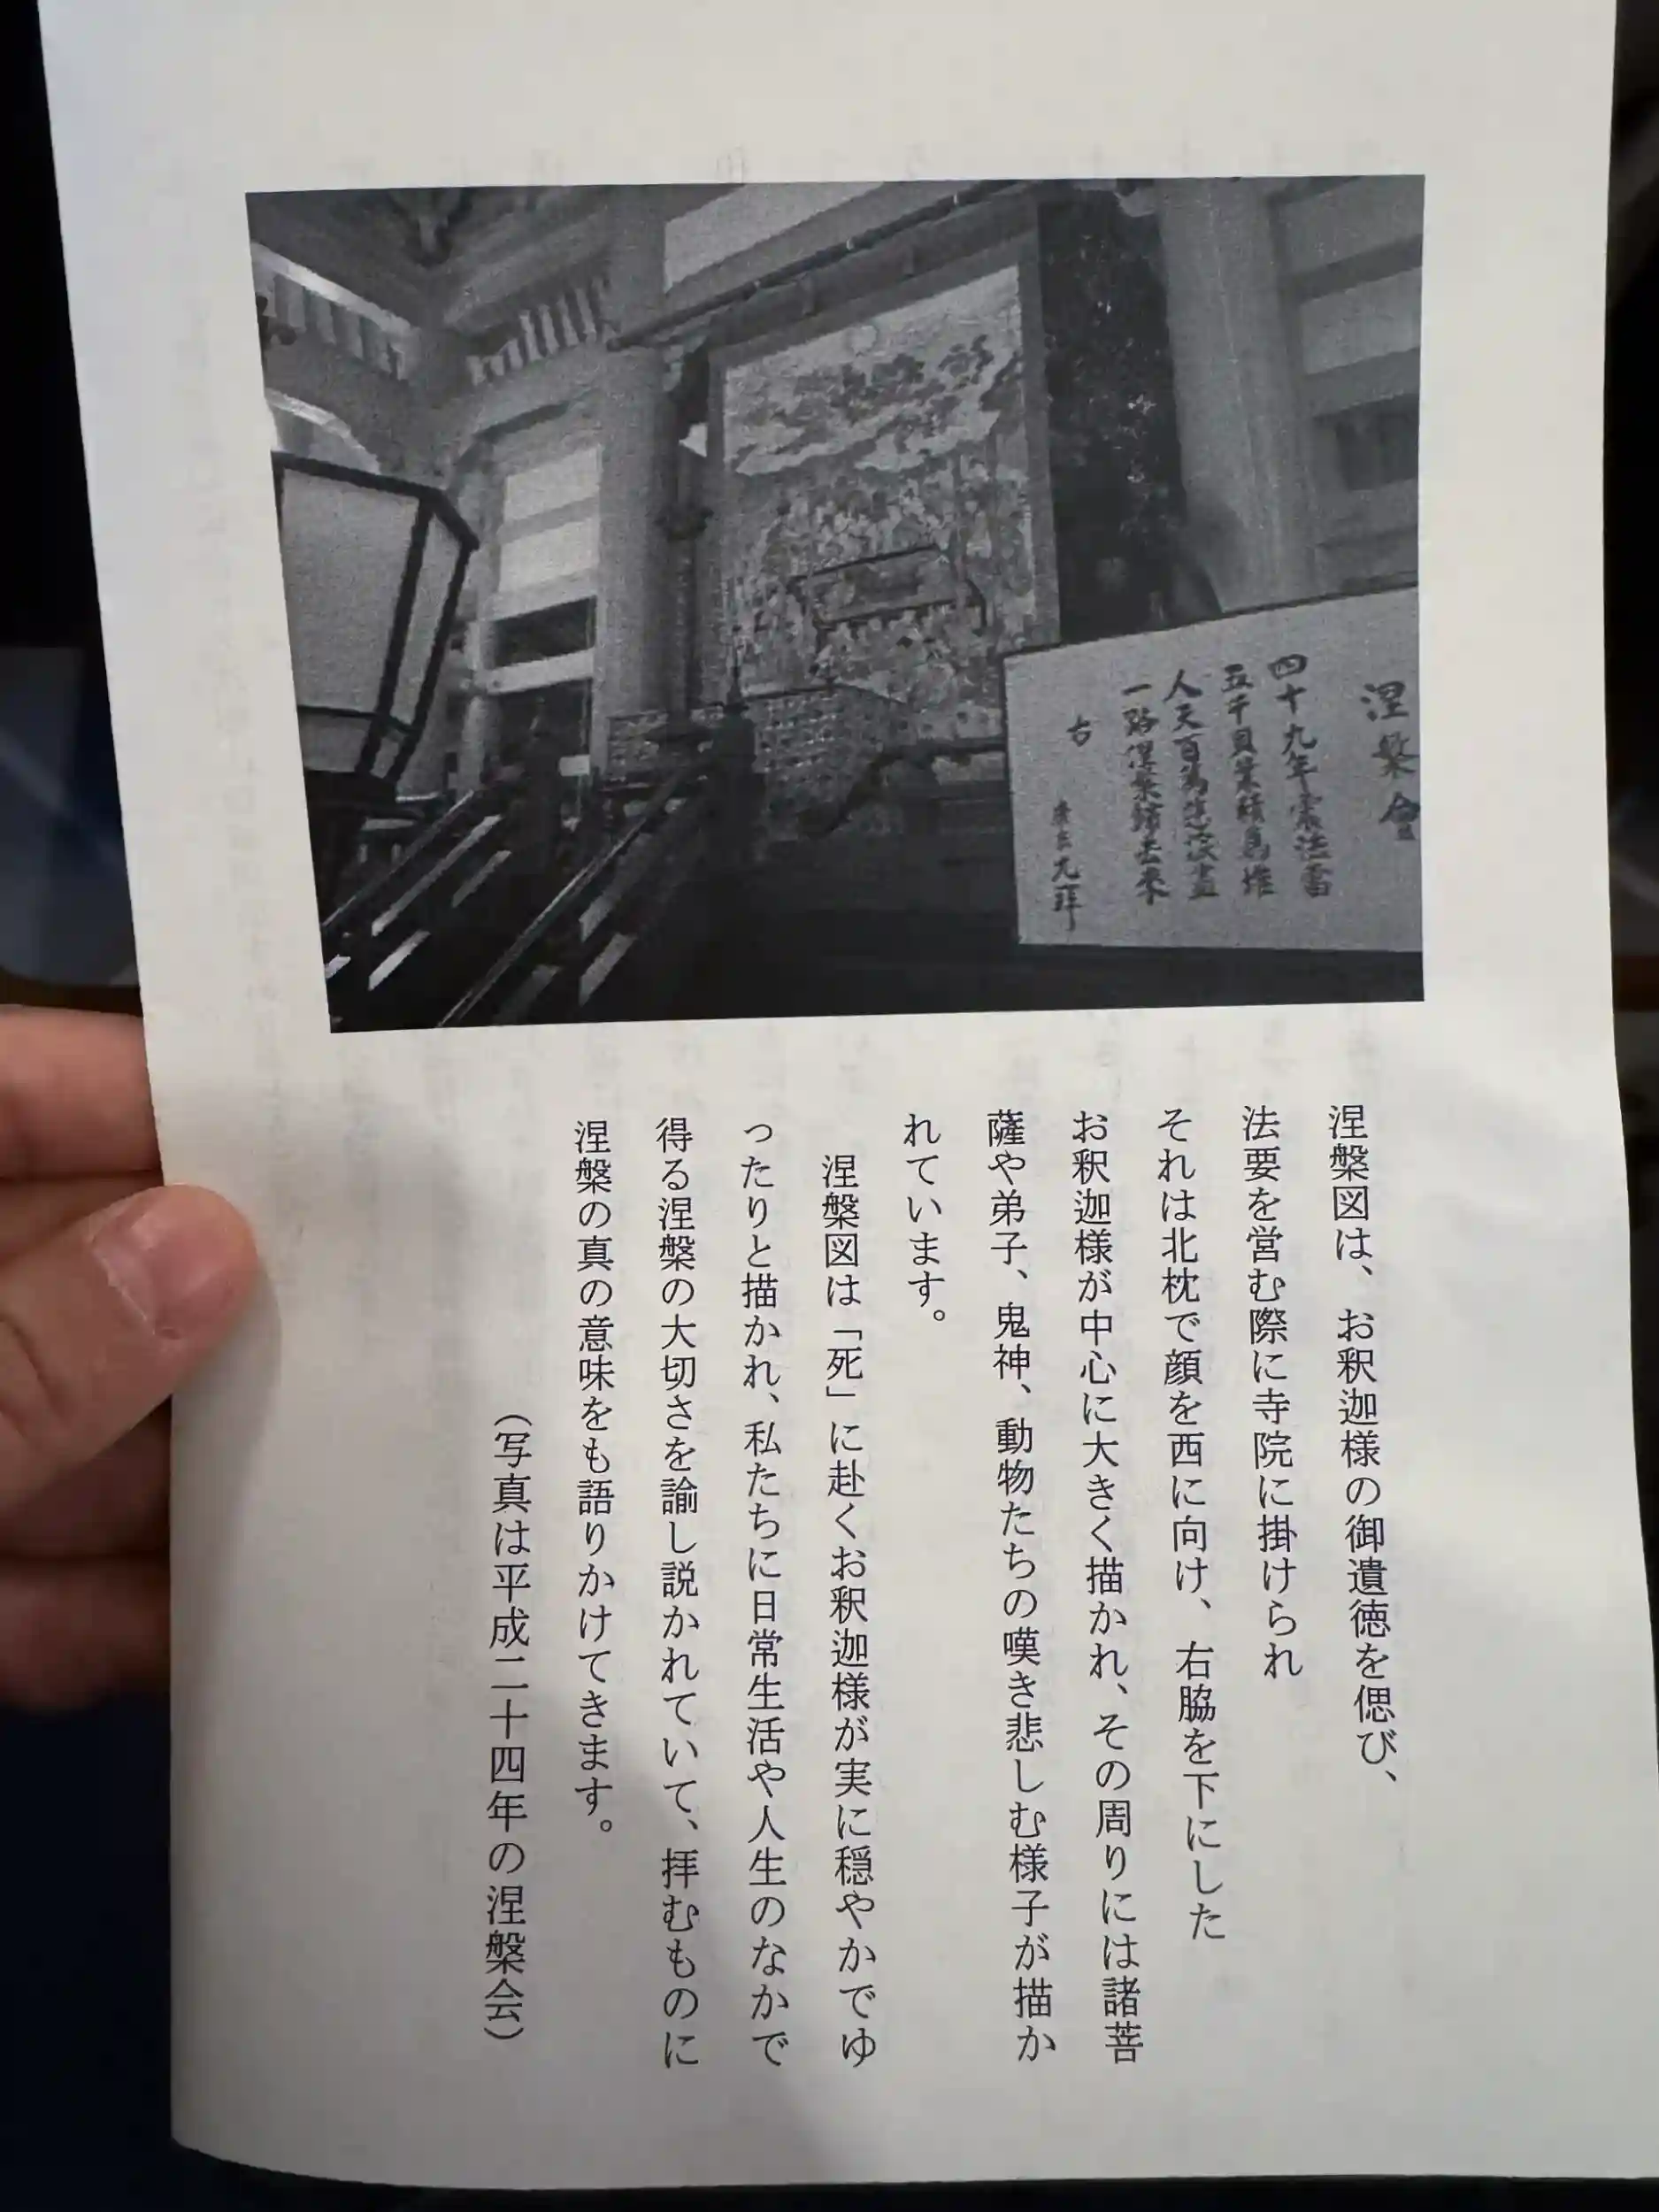 涅槃會
四十九年震法雷
五千貝葉積為堆
人天百萬悲涙盡
一路涅槃歸去来
右
九拝
涅槃図は、お釈迦様の御遺徳を偲び、
法要を営む際に寺院に掛けられ
それは北枕で顔を西に向け、右脇を下にした
お釈迦様が中心に大きく描かれ、その周りには諸菩
薩や弟子、鬼神、動物たちの嘆き悲しむ様子が描か
れています。
涅槃図は「死」に赴くお釈迦様が実に穏やかでゆ
ったりと描かれ、私たちに日常生活や人生のなかで
得る涅槃の大切さを諭し説かれていて、拝むものに
涅槃の真の意味をも語りかけてきます。
(写真は平成二十四年の涅槃会)